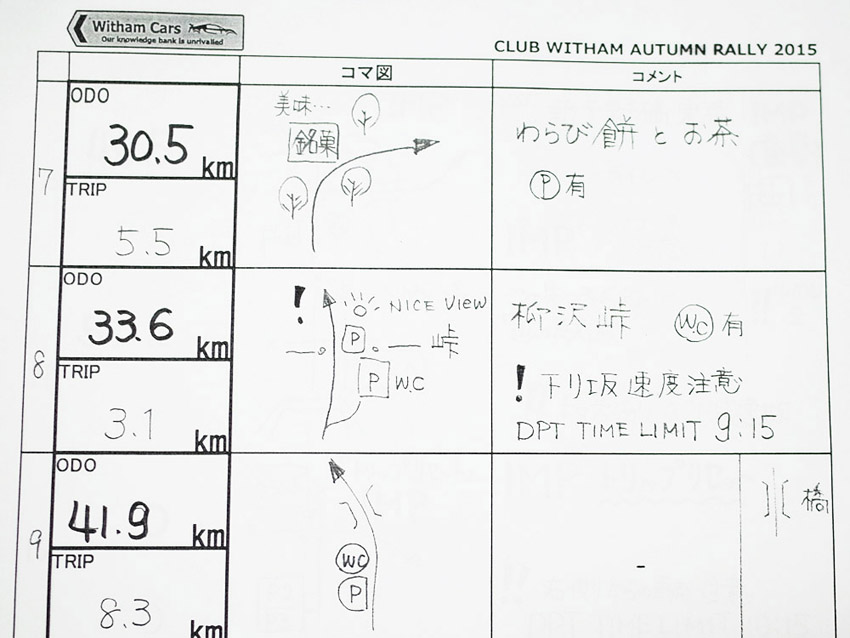 Witham Cars
Our knowledge bank is unrivalled
CLUB WITHAM AUTUMN RALLY 2015
コマ図
コメント
7
ODO
30.5 km
TRIP
5.5 km
美味…
銘菓
わらび餅とお茶
P 有
8
ODO
33.6 km
TRIP
3.1 km
! NICE View
P 峠
P W.C
柳沢峠 W.C 有
! 下り坂速度注意
DPT TIME LIMIT 9:15
9
ODO
41.9 km
TRIP
8.3 km
WC
P
-
橋